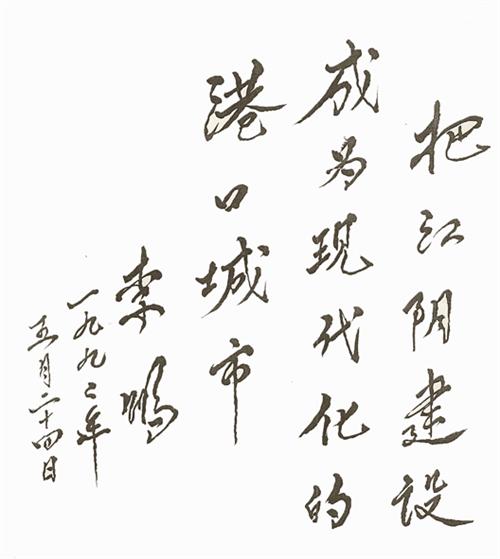 把江阴建设
成为现代化的
港口城市
李鹏
一九九二年
五月二十四日